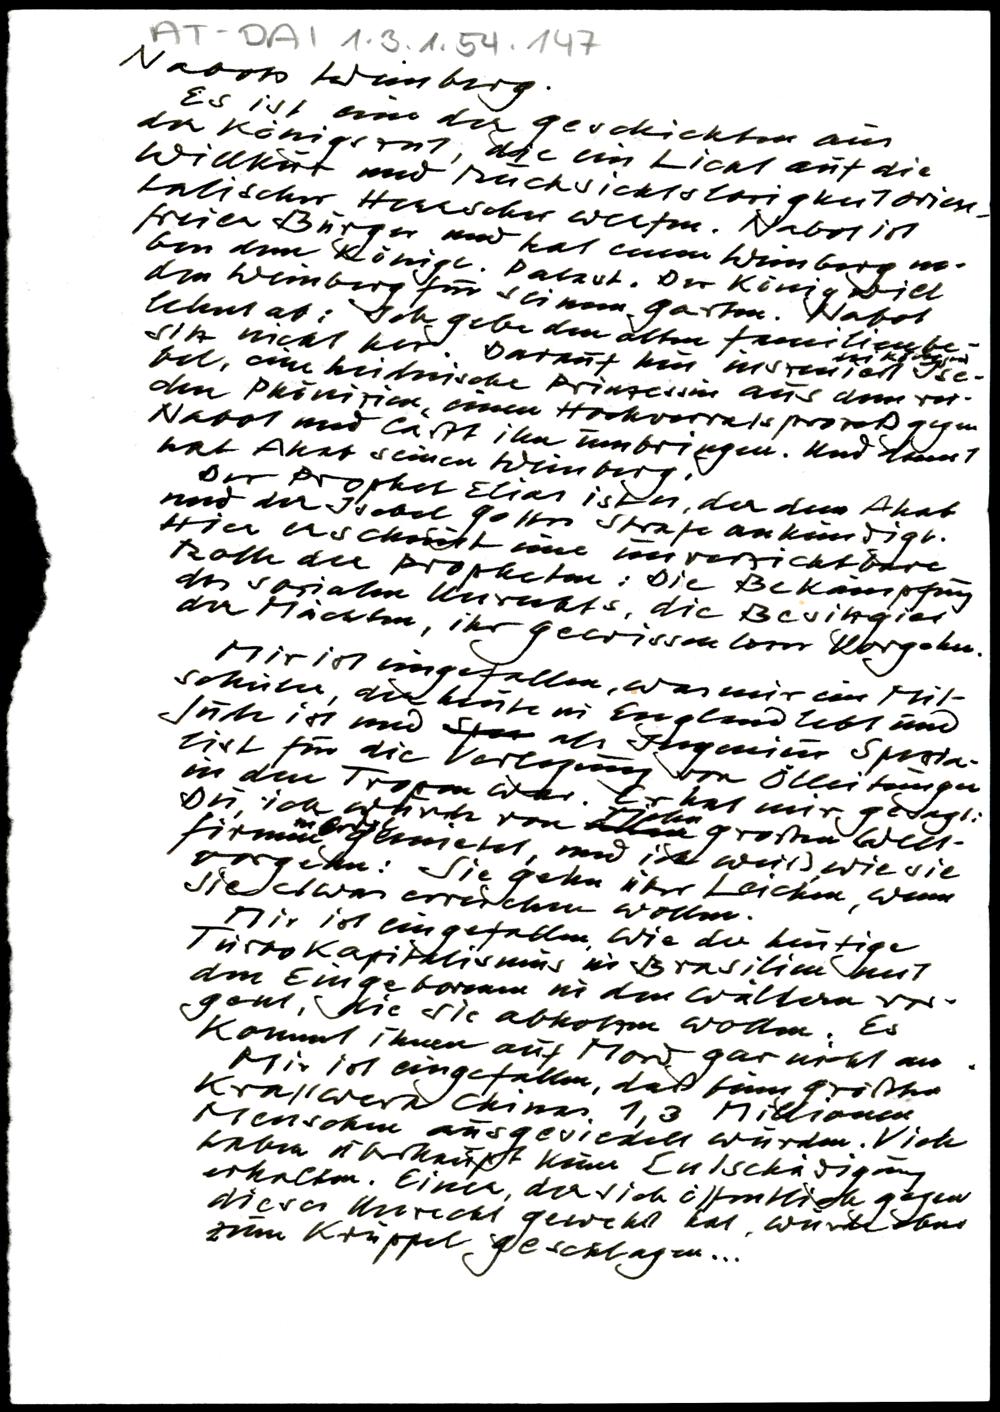 AT-DAI 1.3.1.54.147
Nabots Weinberg.
Es ist eine der Geschichten aus
der Königszeit, die ein Licht auf die
Willkür und Rücksichtslosigkeit orien-
talischer Herrscher werfen. Nabot ist
freier Bürger und hat einen Weinberg ne-
ben dem Königl. Palast. Der König will
den Weinberg für seinen Garten. Nabot
lehnt ab: Ich gebe den alten Familienbe-
sitz nicht her. Darauf hin inszeniert die Königin Ise-
bel, eine heidnische Prinzessin aus dem
den Phönizien, einen Hochverratsprozeß gegen
Nabot und läßt ihn umbringen. Und damit
hat Ahab seinen Weinberg.
Der Prophet Elias ist es, der dem Ahab
und der Isebel Gottes Strafe ankündigt.
Hier erscheint eine unverzichtbare
Rolle der Propheten: Die Bekämpfung
des sozialen Unrechts, die Besitzgier
der Mächten, ihr gewissenloses Vorgehen.
Mir ist eingefallen, was mir ein Mit-
schüler, der heute in England lebt und
Jude ist und als Ingenieur Spezia-
list für die Verlegung von Ölleitungen
in den Tropen war. Er hat mir gesagt:
Du, ich wurde von großen Welt-
firmen gemietet, und ich weiß, wie sie
vorgehn: Sie gehn über Leichen, wenn
sie etwas erreichen wollen.
Mir ist eingefallen, wie der heutige
Turbokapitalismus in Brasilien mit
den Eingeborenen in den Wäldern vor-
geht, die sie abholzen wollen. Es
kommt ihnen auf Mord gar nicht an.
Mir ist eingefallen, daß beim größten
Kraftwerk Chinas 1,3 Millionen
Menschen ausgesiedelt wurden. Viele
haben überhaupt keine Entschädigung
erhalten. Einer, der sich öffentlich gegen
dieses Unrecht gewehrt hat, wurde eben
zum Krüppel geschlagen...